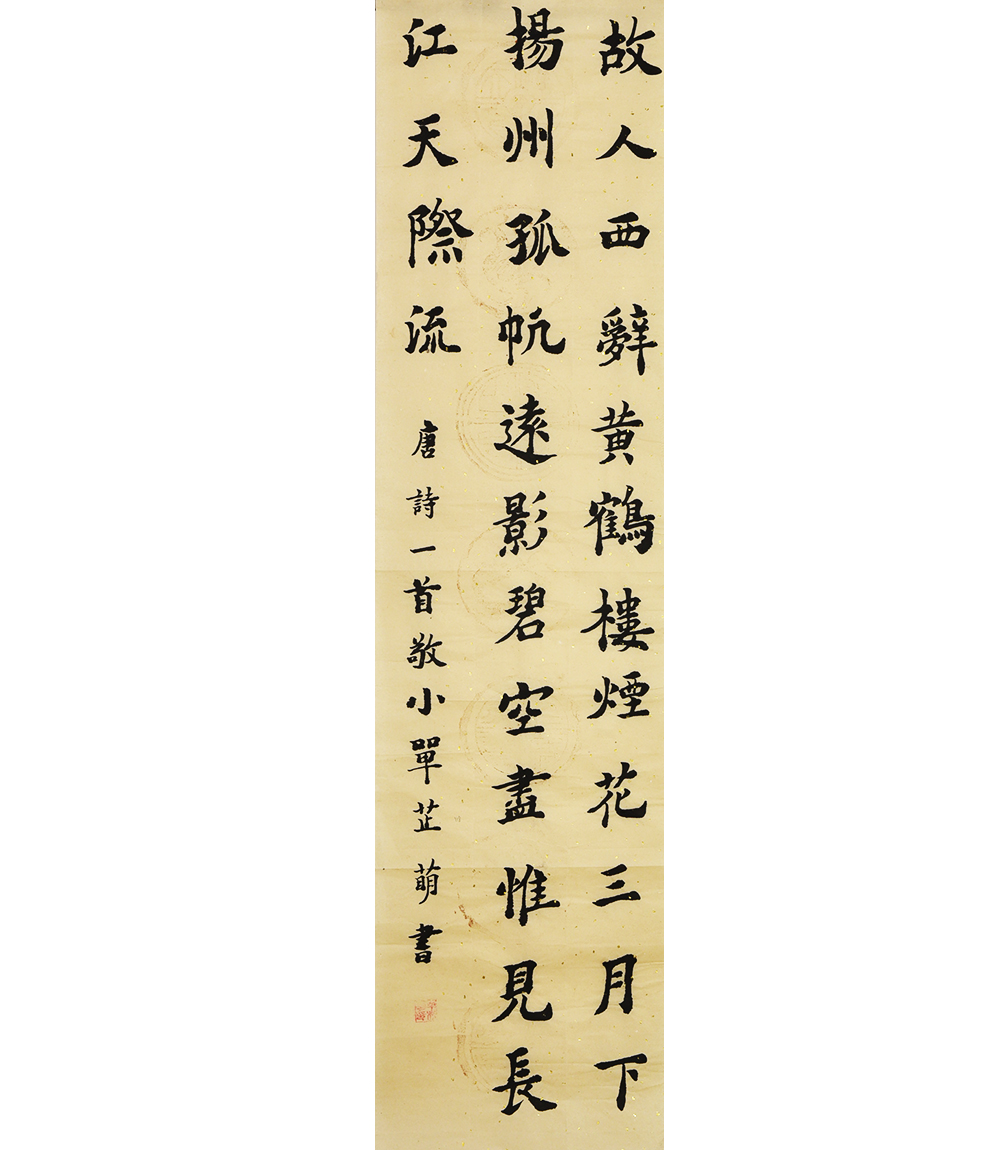 故人西辭黄鶴樓煙花三月下
揚州孤帆遠影碧空盡惟見長
江天際流
唐詩一首敬小單芷萌書